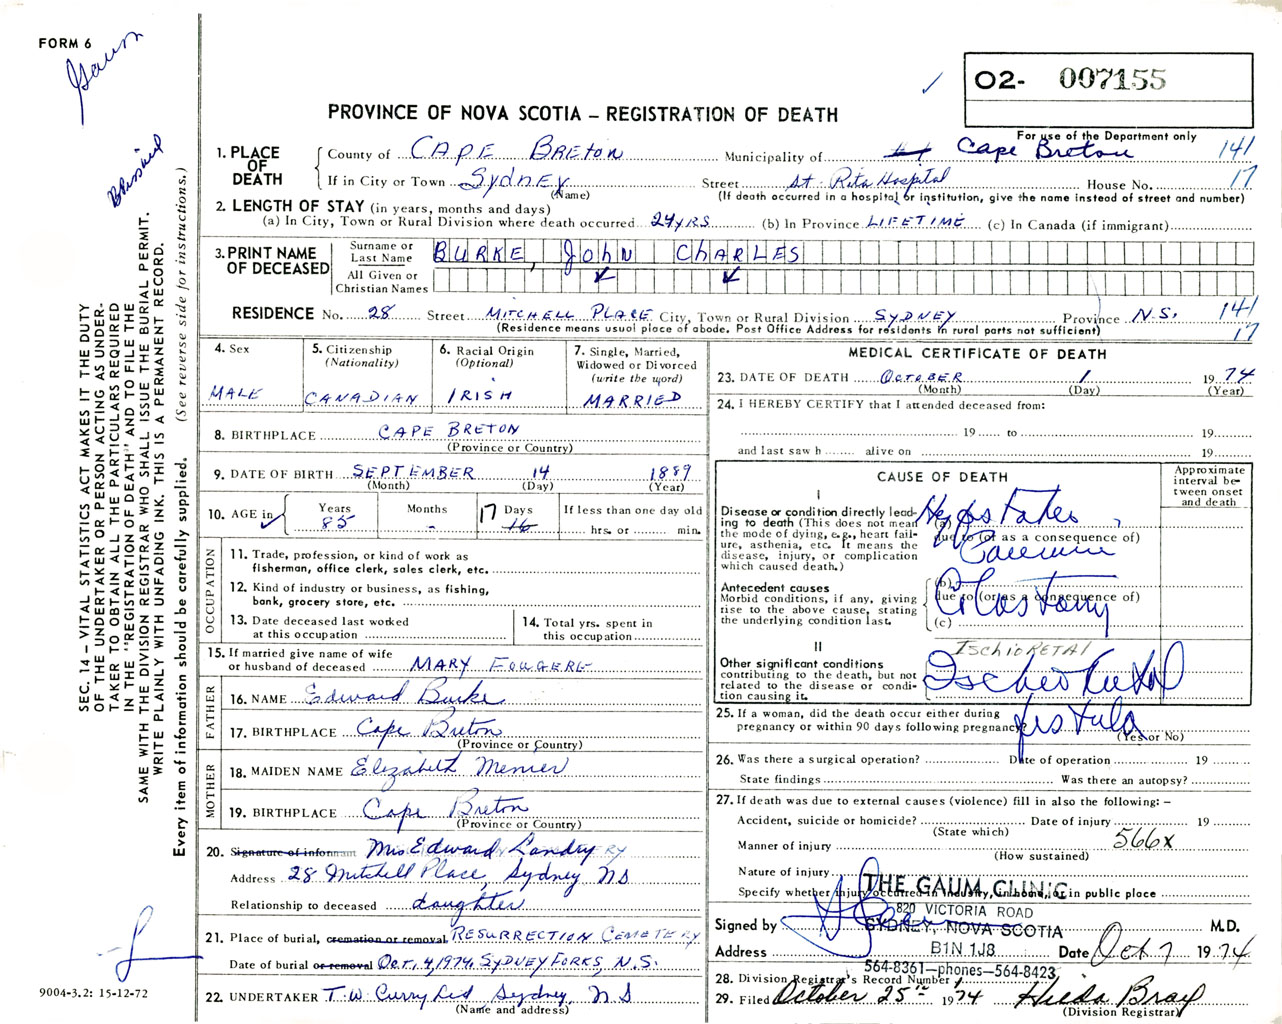 FORM 6
Gaum
O2- 007155
PROVINCE OF NOVA SCOTIA – REGISTRATION OF DEATH
For use of the Department only
1. PLACE OF DEATH County of CAPE BRETON Municipality of Cape Breton 141
If in City or Town Sydney (Name) Street St. Rita Hospital House No. 17
(If death occurred in a hospital or institution, give the name instead of street and number)
2. LENGTH OF STAY (in years, months and days)
(a) In City, Town or Rural Division where death occurred 24 YRS (b) In Province LIFETIME (c) In Canada (if immigrant)
3. PRINT NAME OF DECEASED Surname or Last Name BURKE, John ChARLES
All Given or Christian Names
RESIDENCE No. 28 Street MITCHELL PLACE City, Town or Rural Division SYDNEY Province N.S. 141
17
(Residence means usual place of abode. Post Office Address for residents in rural parts not sufficient)
4. Sex MALE
5. Citizenship (Nationality) CANADIAN
6. Racial Origin (Optional) IRISH
7. Single, Married, Widowed or Divorced (write the word) MARRIED
8. BIRTHPLACE CAPE BRETON
(Province or Country)
9. DATE OF BIRTH SEPTEMBER 14 1889
(Month) (Day) (Year)
10. AGE in Years 85 Months - Days 17 16 If less than one day old hrs. or min.
OCCUPATION
11. Trade, profession, or kind of work as fisherman, office clerk, sales clerk, etc.
12. Kind of industry or business, as fishing, bank, grocery store, etc.
13. Date deceased last worked at this occupation
14. Total yrs. spent in this occupation
15. If married give name of wife or husband of deceased MARY FOUGERE
FATHER
16. NAME Edward Burke
17. BIRTHPLACE Cape Breton
(Province or Country)
MOTHER
18. MAIDEN NAME Elizabeth
19. BIRTHPLACE Cape Breton
(Province or Country)
20. Signature of informant Mrs Edward Landry
Address 28 Mitchell Place, Sydney NS
Relationship to deceased daughter
21. Place of burial, cremation or removal RESURRECTION CEMETERY
Date of burial or removal Oct. 4, 1974. SYDNEY FORKS, N.S.
22. UNDERTAKER T.W. Curry Ltd Sydney, NS
(Name and address)
MEDICAL CERTIFICATE OF DEATH
23. DATE OF DEATH OCTOBER 1 1974
(Month) (Day) (Year)
24. I HEREBY CERTIFY that I attended deceased from:
19 to 19
and last saw h alive on 19
CAUSE OF DEATH
Approximate interval between onset and death
I
Disease or condition directly leading to death (This does not mean the mode of dying, e.g., heart failure, asthenia, etc. It means the disease, injury, or complication which caused death.)
(a)
due to (or as a consequence of)
Antecedent causes
Morbid conditions, if any, giving rise to the above cause, stating the underlying condition last.
(b) Colostomy
due to (or as a consequence of)
(c)
II
Other significant conditions contributing to the death, but not related to the disease or condition causing it.
ISchioRETAl
Ischio Rectal
fistula
25. If a woman, did the death occur either during pregnancy or within 90 days following pregnancy (Yes or No)
26. Was there a surgical operation? Date of operation 19
State findings Was there an autopsy?
27. If death was due to external causes (violence) fill in also the following: –
Accident, suicide or homicide? Date of injury 19
(State which)
Manner of injury 566X
(How sustained)
Nature of injury
Specify whether injury occurred in Industry, in home, or in public place
THE GAUM CLINIC
820 VICTORIA ROAD
SYDNEY, NOVA SCOTIA
B1N 1J8
564-8361—phones—564-8423
Signed by M.D.
Address Date Oct 7 1974
28. Division Registrar's Record Number
29. Filed October 25th 1974 Hilda Bray
(Division Registrar)
SEC. 14 – VITAL STATISTICS ACT MAKES IT THE DUTY
OF THE UNDERTAKER OR PERSON ACTING AS UNDER-
TAKER TO OBTAIN ALL THE PARTICULARS REQUIRED
IN THE "REGISTRATION OF DEATH" AND TO FILE THE
SAME WITH THE DIVISION REGISTRAR WHO SHALL ISSUE THE BURIAL PERMIT.
WRITE PLAINLY WITH UNFADING INK. THIS IS A PERMANENT RECORD.
Every item of information should be carefully supplied. (See reverse side for instructions.)
9004-3.2: 15-12-72